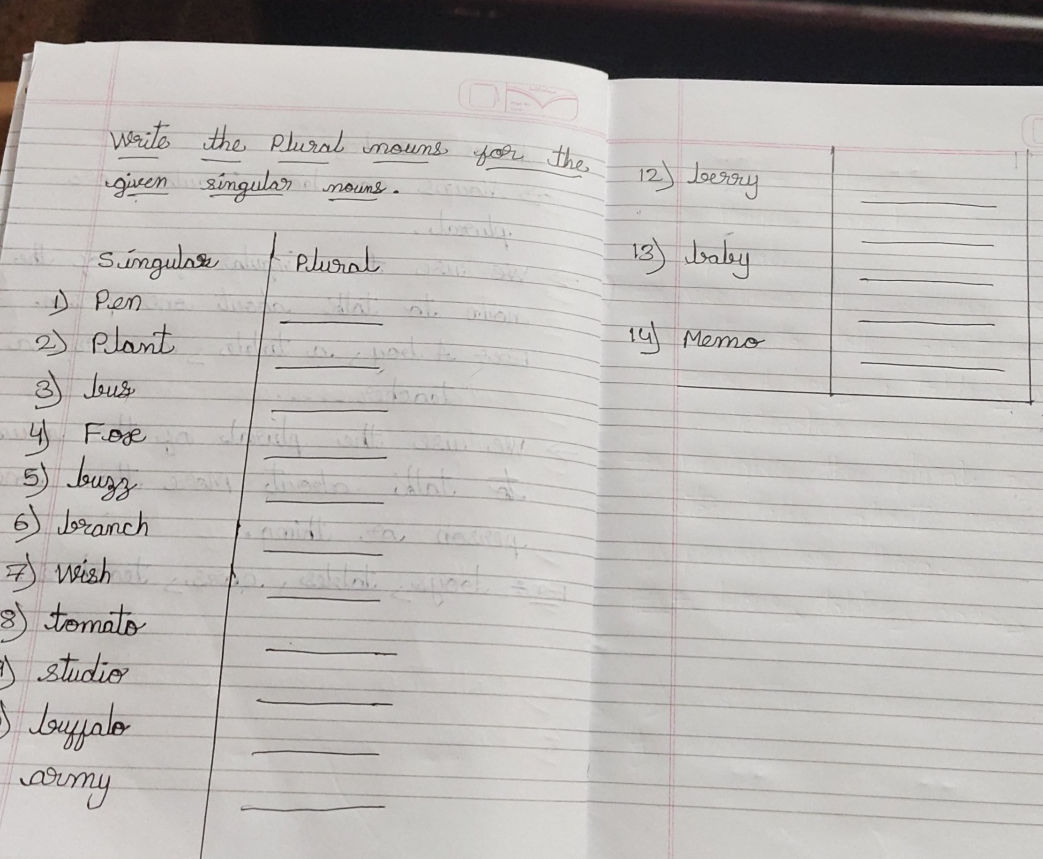 Write the Plural nouns for the
given singular nouns.
Singular Plural
1) Pen
2) Plant
3) bus
4) Fox
5) buzz
6) branch
7) Wish
8) tomato
9) studio
) buffalo
army
12) berry
13) baby
14) Memo